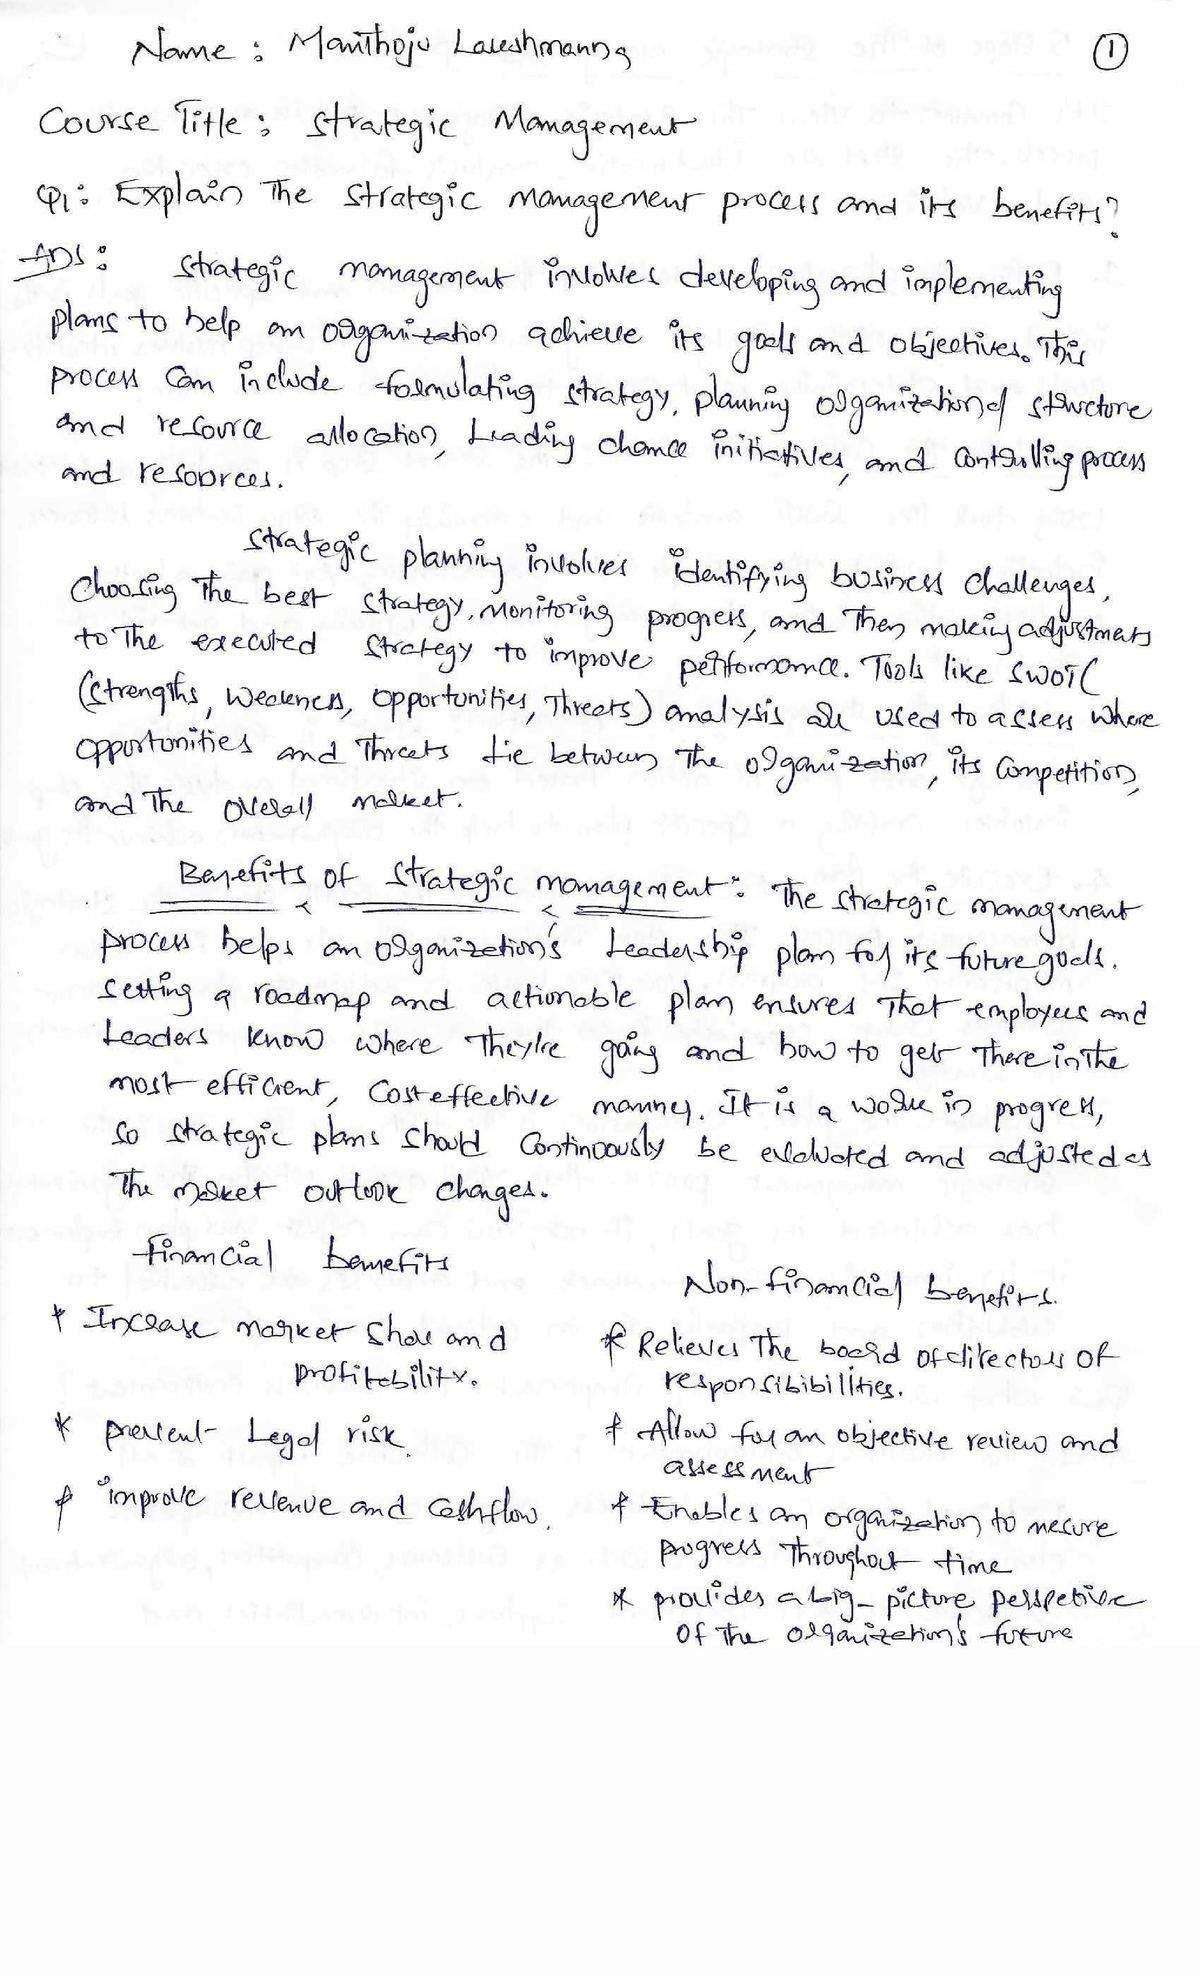 Name : Manthoju Laxshmanna
①
Course Title : Strategic Management
Q1: Explain The Strategic management process and its benefits?
Ans: Strategic management involves developing and implementing
plans to help an organization achieve its goals and objectives. This
process can include formulating strategy, planning organizational structure
and resource allocation, Leading chance initiatives, and controlling process
and resources.
Strategic planning involves identifying business challenges,
choosing The best strategy, monitoring progress, and Then making adjustments
to The executed strategy to improve performance. Tools like SWOT (
(Strengths, Weakness, Opportunities, Threats) analysis are used to assess where
opportunities and Threats Lie between The organization, its Competition,
and The overall market.
Benefits of Strategic management : The strategic management
process helps an organization's Leadership plan for its future goals.
Setting a roadmap and actionable plan ensures That employees and
Leaders know where They're going and how to get There in The
most efficient, Cost effective manner. It is a work in progress,
So strategic plans should Continuously be evaluated and adjusted as
The market outlook changes.
Financial benefits
* Increase market Share and
profitability.
* prevent Legal risk.
* improve revenue and cashflow.
Non-financial benefits.
* Relieves The board of directors of
responsibibilities.
* Allow for an objective review and
assessment
* Enables an organization to mesure
progress Throughout time
* provides a big-picture perspetive
of The organization's future